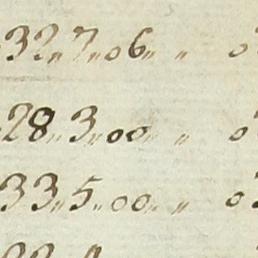 32„7„06„ „ 0
28„3„00 „ 0
33„5„00„ „ 0